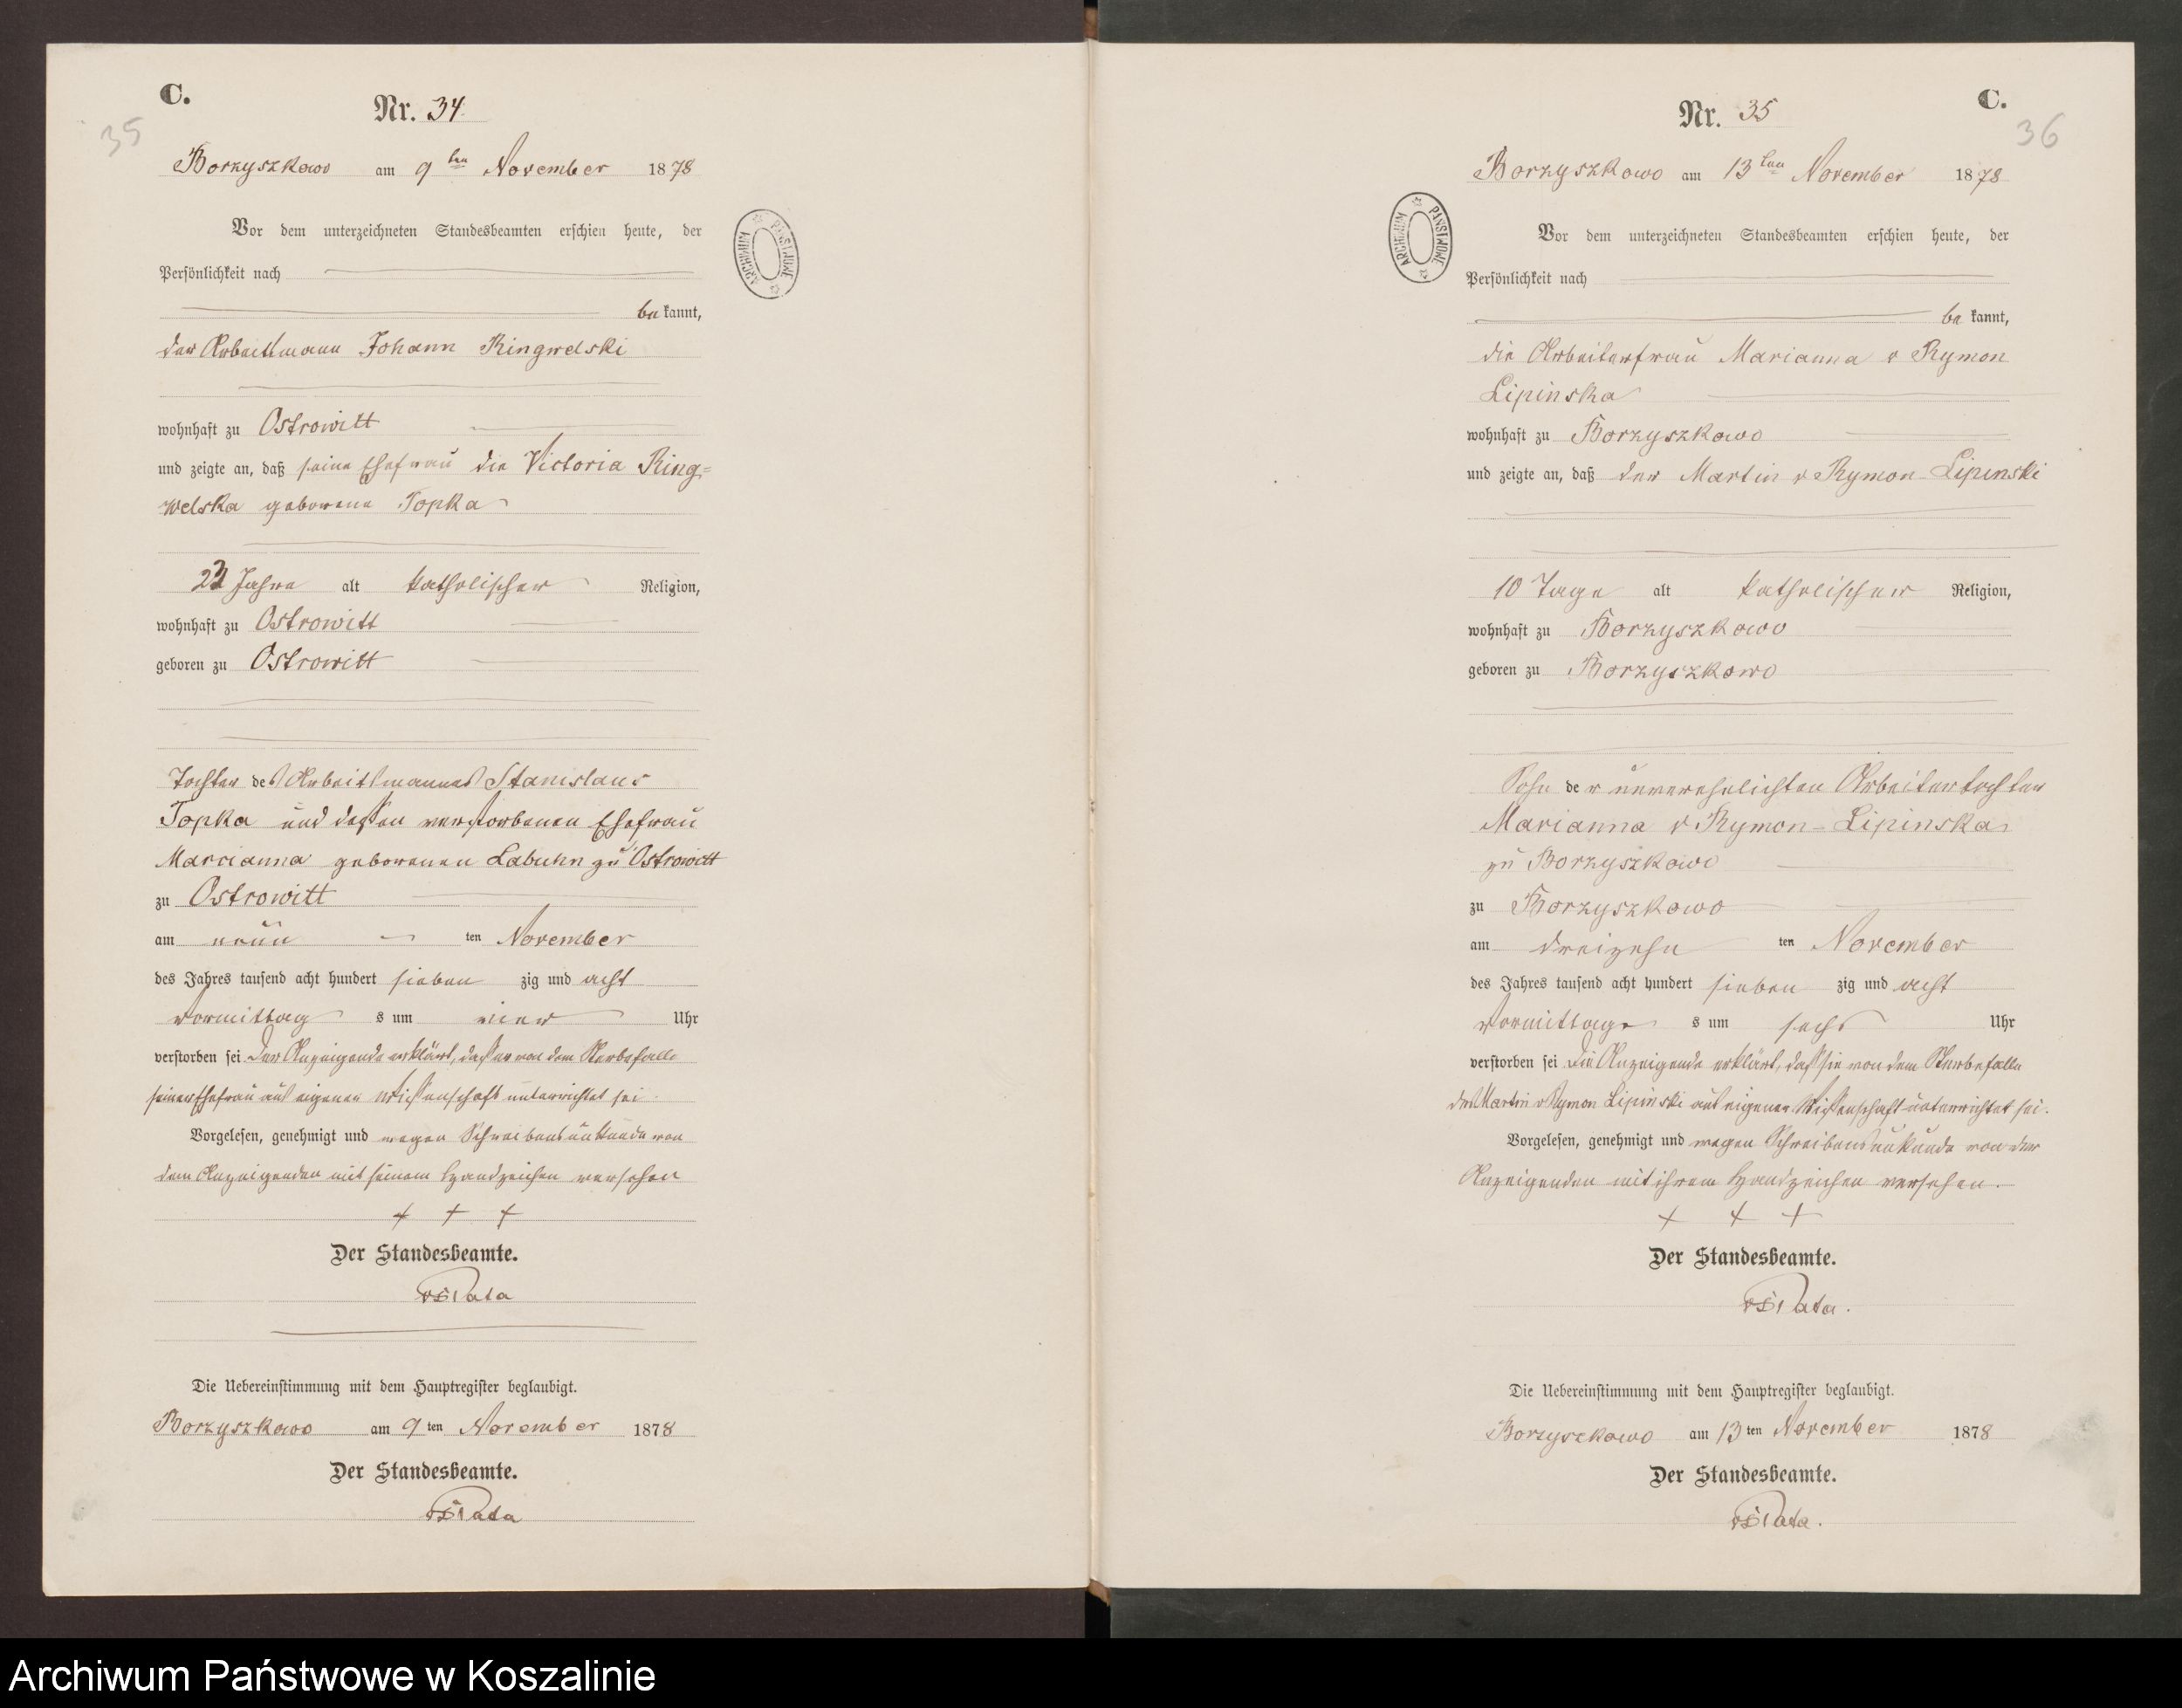 C.
35
Nr. 34.
Borzyszkowo am 9ten November 1878
Vor dem unterzeichneten Standesbeamten erschien heute, der
Persönlichkeit nach
be kannt,
der Arbeitsmann Johann Ringwelski
wohnhaft zu Ostrowitt
und zeigte an, daß seine Ehefrau die Victoria Ring=
welska geborene Topka
Jahre alt katholischer Religion,
wohnhaft zu Ostrowitt
geboren zu Ostrowitt
Tochter des Arbeitsmannes Stanislaus
Topka und dessen verstorbenen Ehefrau
Marcianna geborenen Labuhn zu Ostrowitt
zu Ostrowitt
am neun ten November
des Jahres tausend acht hundert sieben zig und acht
vormittag s um vier Uhr
verstorben sei Der Anzeigende erklärt, daß er von dem Sterbefalle
seiner Ehefrau aus eigener Wissenschaft unterrichtet sei.
Vorgelesen, genehmigt und wegen Schreibensunkunde von
dem Anzeigenden mit seinem Handzeichen versehen
+ + +
Der Standesbeamte.
Die Uebereinstimmung mit dem Hauptregister beglaubigt.
Borzyszkowo am 9 ten November 1878
Der Standesbeamte.
ARCHIWUM PAŃSTWOWE
C.
36
Nr. 35
Borzyszkowo am 13ten November 1878
Vor dem unterzeichneten Standesbeamten erschien heute, der
Persönlichkeit nach
be kannt,
die Arbeiterfrau Marianna v Rymon
Lipinska
wohnhaft zu Borzyszkowo
und zeigte an, daß der Martin v Rymon-Lipinski
10 Tage alt katholischer Religion,
wohnhaft zu Borzyszkowo
geboren zu Borzyszkowo
Sohn der unverehelichten Arbeitertochter
Marianna v Rymon-Lipinska
zu Borzyszkowo
zu Borzyszkowo
am dreizehn ten November
des Jahres tausend acht hundert sieben zig und acht
vormittage s um sechs Uhr
verstorben sei Die Anzeigende erklärt, daß sie von dem Sterbefalle
des Martin v Rymon Lipinski aus eigener Wissenschaft unterrichtet sei.
Vorgelesen, genehmigt und wegen Schreibensunkunde von der
Anzeigenden mit ihrem Handzeichen versehen.
+ + +
Der Standesbeamte.
Die Uebereinstimmung mit dem Hauptregister beglaubigt.
Borzyszkowo am 13 ten November 1878
Der Standesbeamte.
ARCHIWUM PAŃSTWOWE
Archiwum Państwowe w Koszalinie